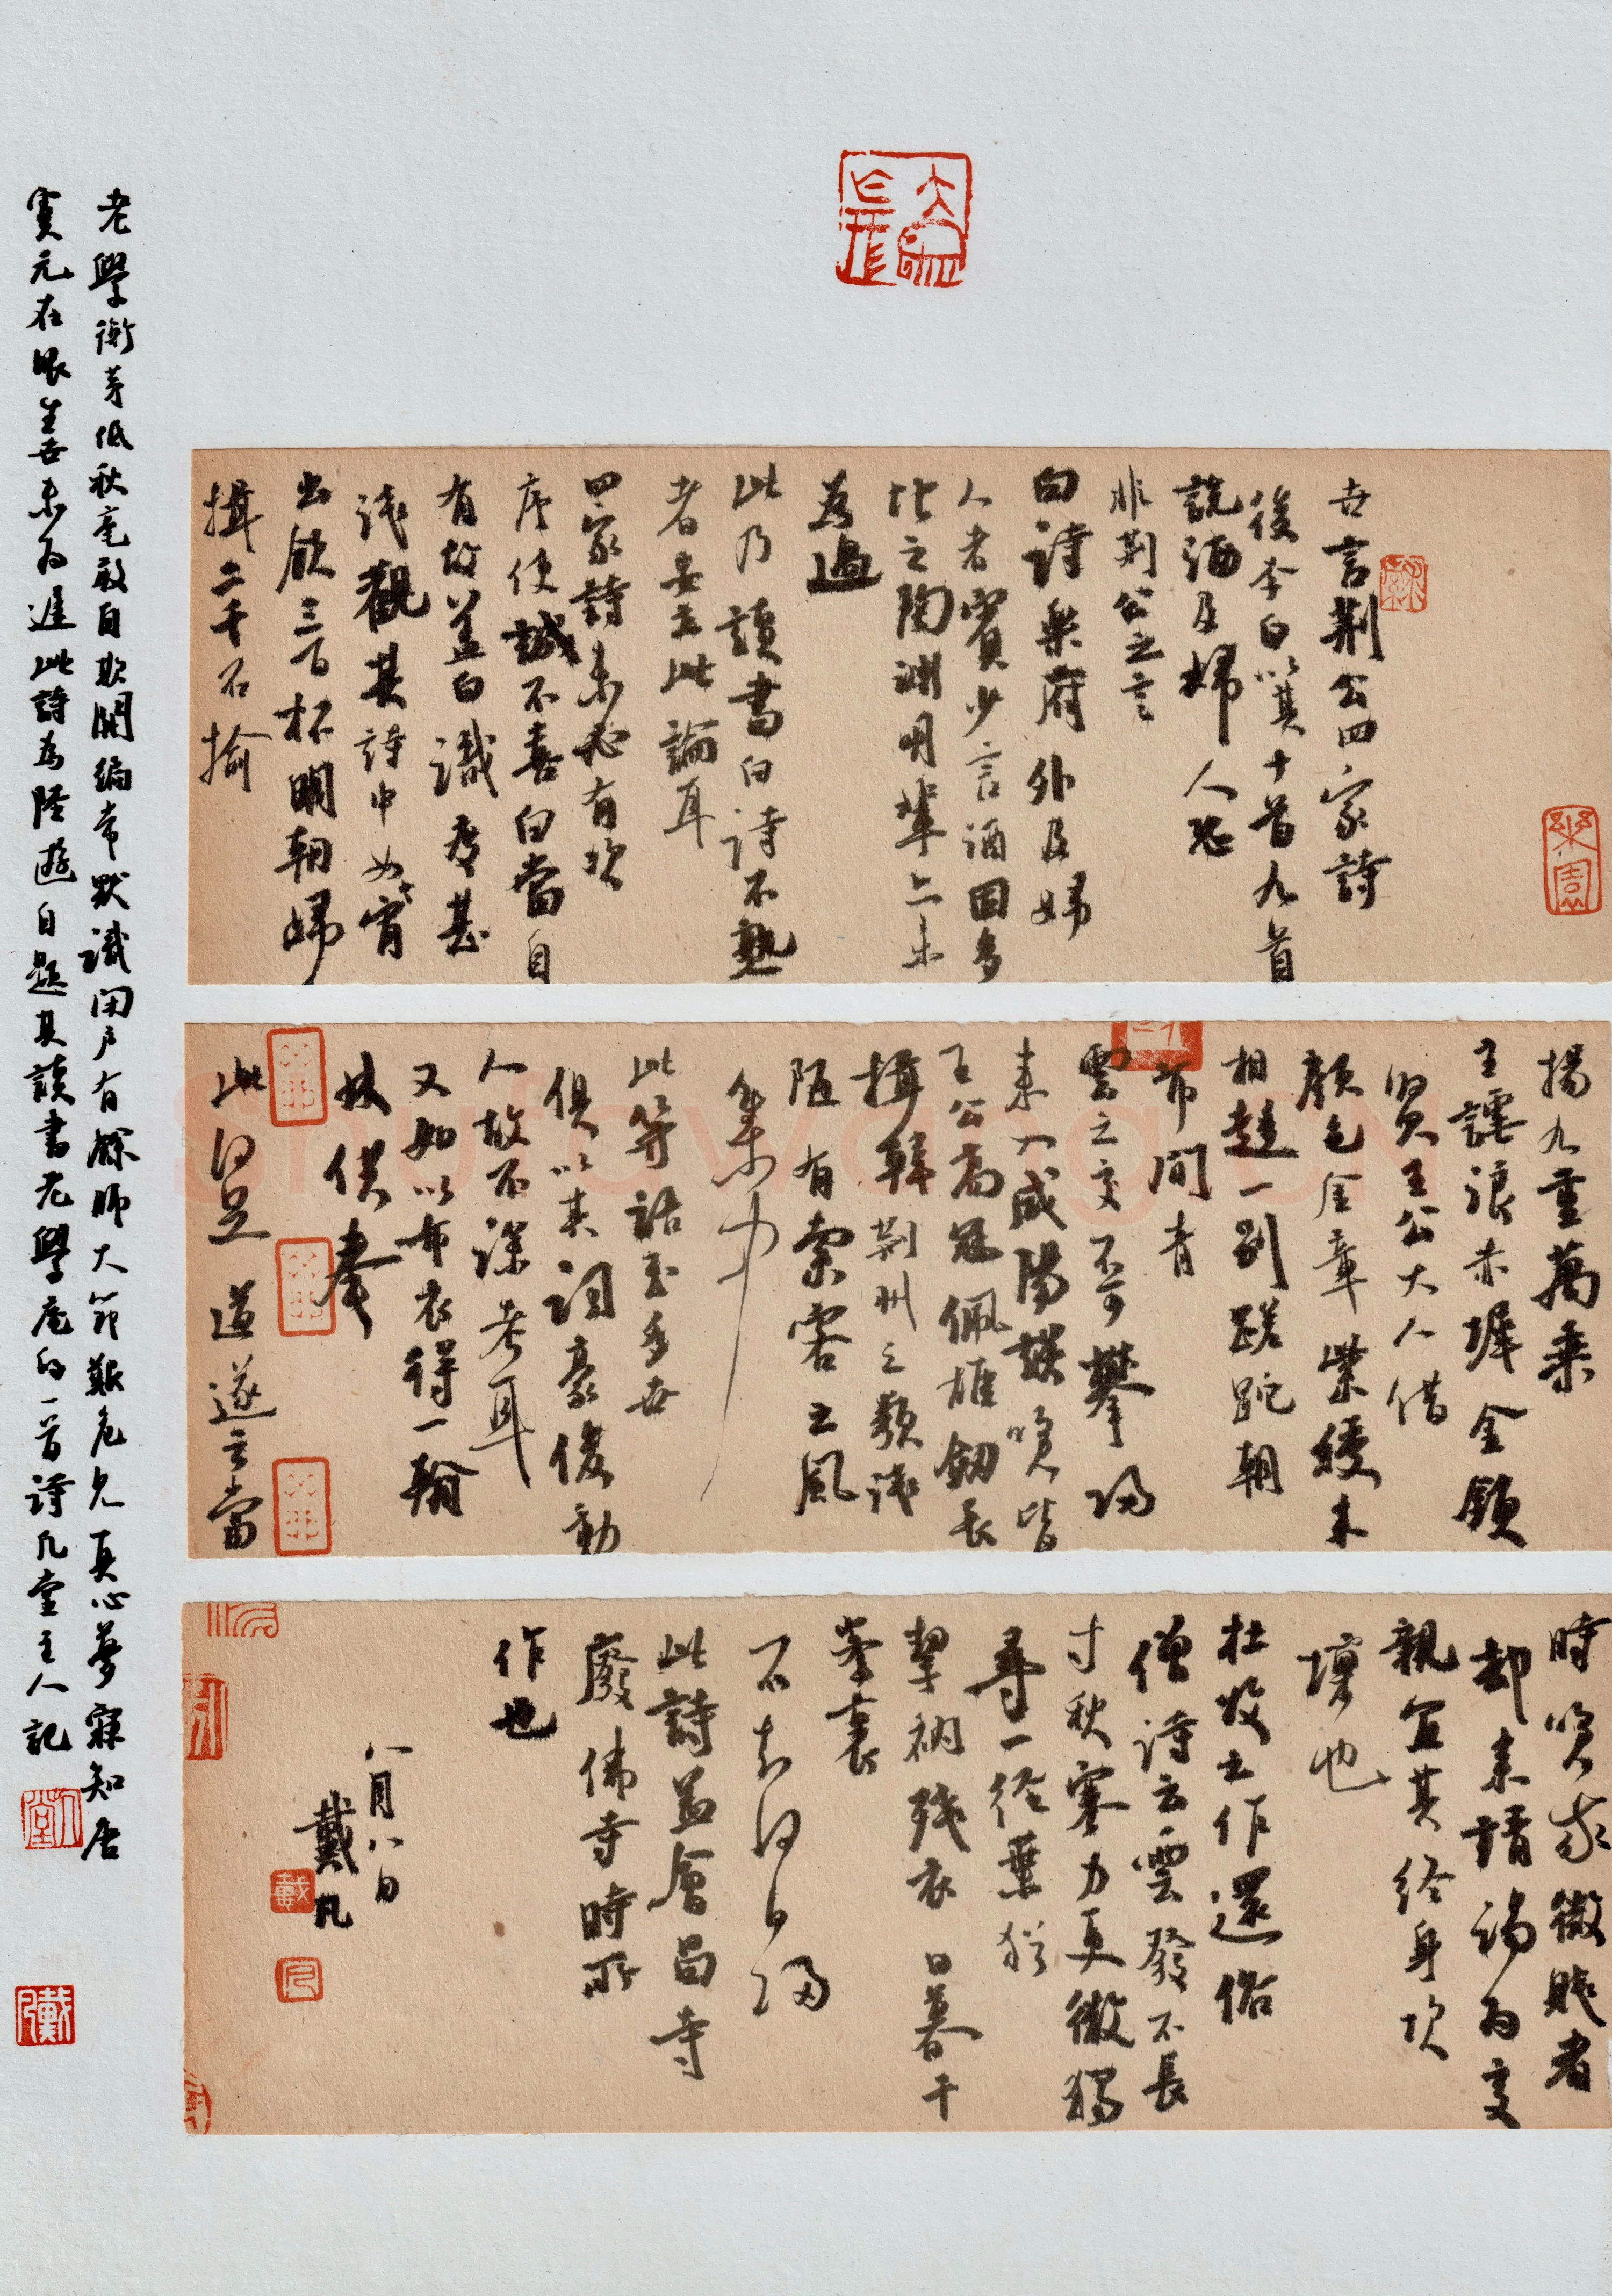 世言荆公四家詩
後李白以其十首九首
説酒及婦人恐
非荆公之言
白詩樂府外及婦
人者實少言酒固多
比之陶淵明輩亦未
為過
此乃讀書白詩不熟
者妄立此論耳
四家詩未必有次
序使誠不喜白當自
有故蓋白識度甚
淺觀其詩中如宵
出飲三百杯明朝歸
揖二千石揄
揚九重萬乘
主謔浪赤墀金鎖
賢王公大人借
顏色金章紫綬来
相趨一别蹉跎朝
市間青
雲之交不可攀歸
来入咸陽談笑皆
王公高冠佩雄劒長
揖韓荆州之類淺
陋有索客之風
集中
此等語至多世
俱以其詞豪俊動
人故不深考耳
又如以布衣得一翰
林供奉
此何足道遂云當
時笑我微賤者
却来請謁為交
親宜其終身坎
壈也
杜牧之作還俗
僧詩云雲發不長
寸秋寒力更微獨
尋一徑葉猶
挈衲殘衣日暮千
峯裏
不知何日歸
此詩蓋會昌寺
廢佛寺時所
作也
八月八日
戴凡
老學衡茅低秋毫敢自欺開編常默識閉户有餘師大節艱危見真心夢寐知唐
虞元在眼生世未為遲此詩為陸遊自題其讀書老學庵的一首詩凡堂主人記